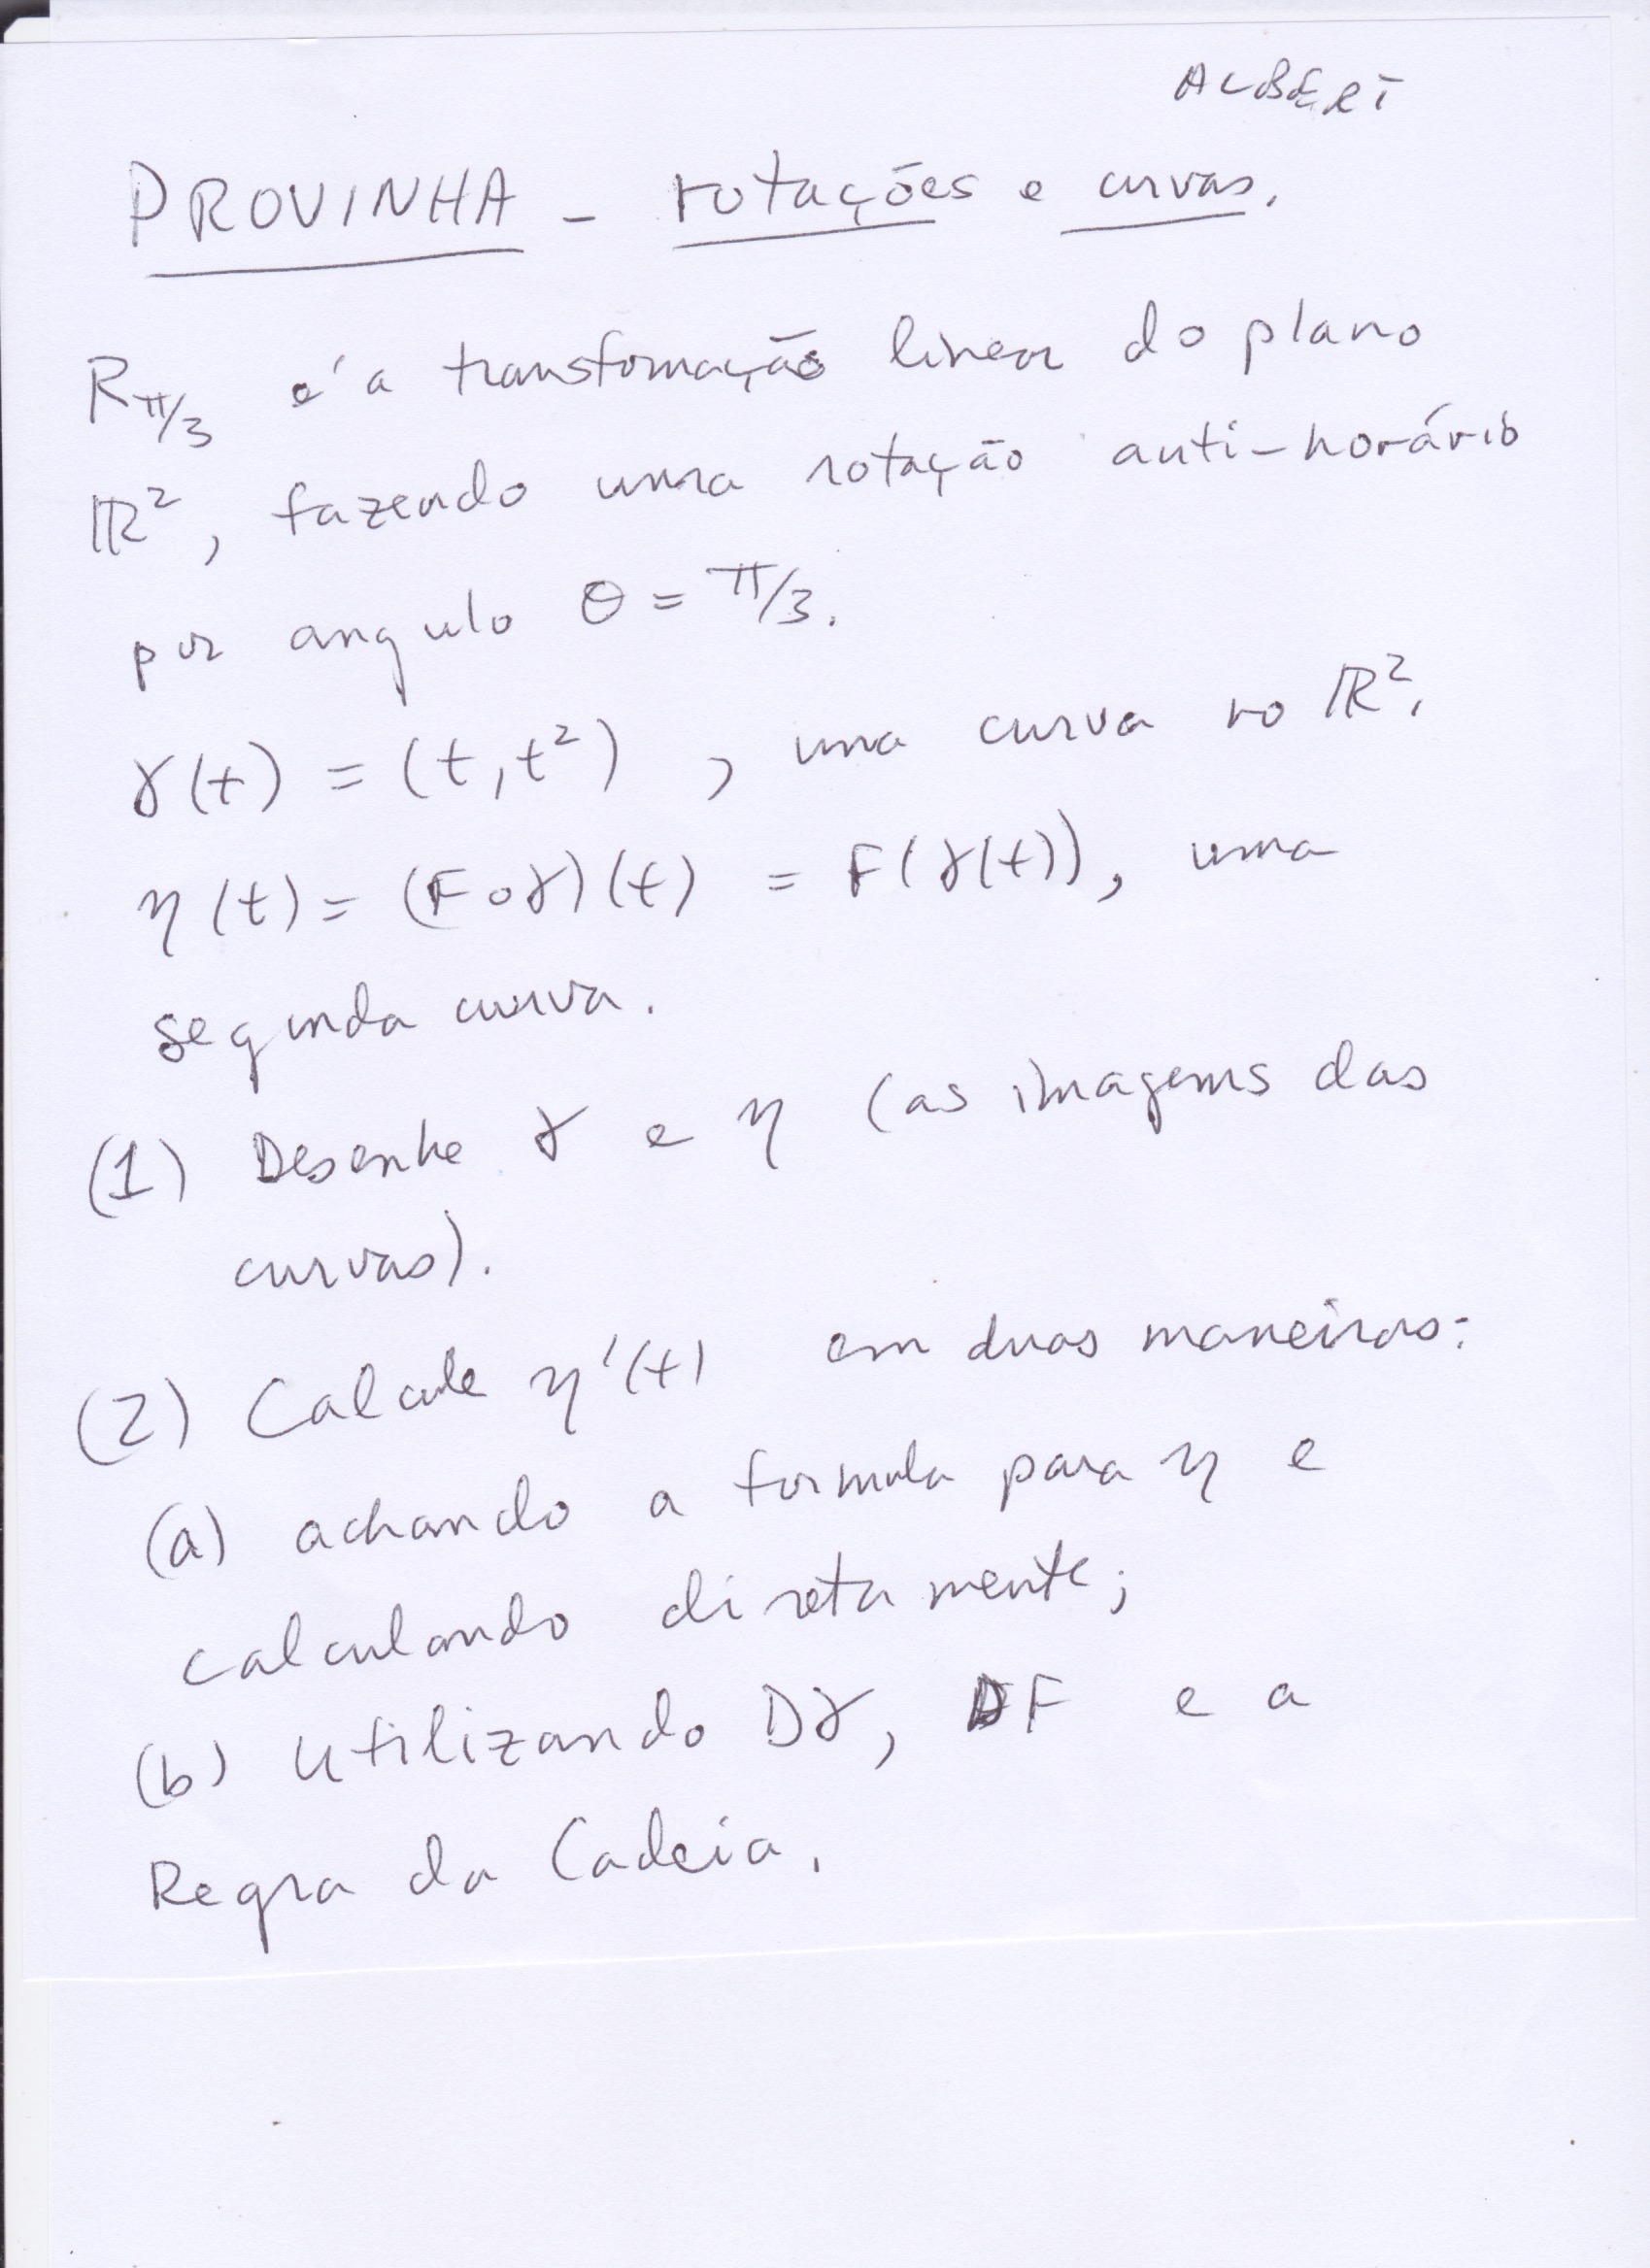 ALBERT
PROVINHA - rotações e curvas.
R_{π/3} e' a transfomação linear do plano
ℝ², fazendo uma rotação anti-horário
por angulo θ = π/3.
γ(t) = (t, t²), uma curva no ℝ².
η(t) = (F∘γ)(t) = F(γ(t)), uma
segunda curva.
(1) Desenhe γ e η (as imagems das
curvas).
(2) Calcule η'(t) em duas maneiras:
(a) achando a formula para η e
calculando diretamente;
(b) Utilizando Dγ, DF e a
Regra da Cadeia.